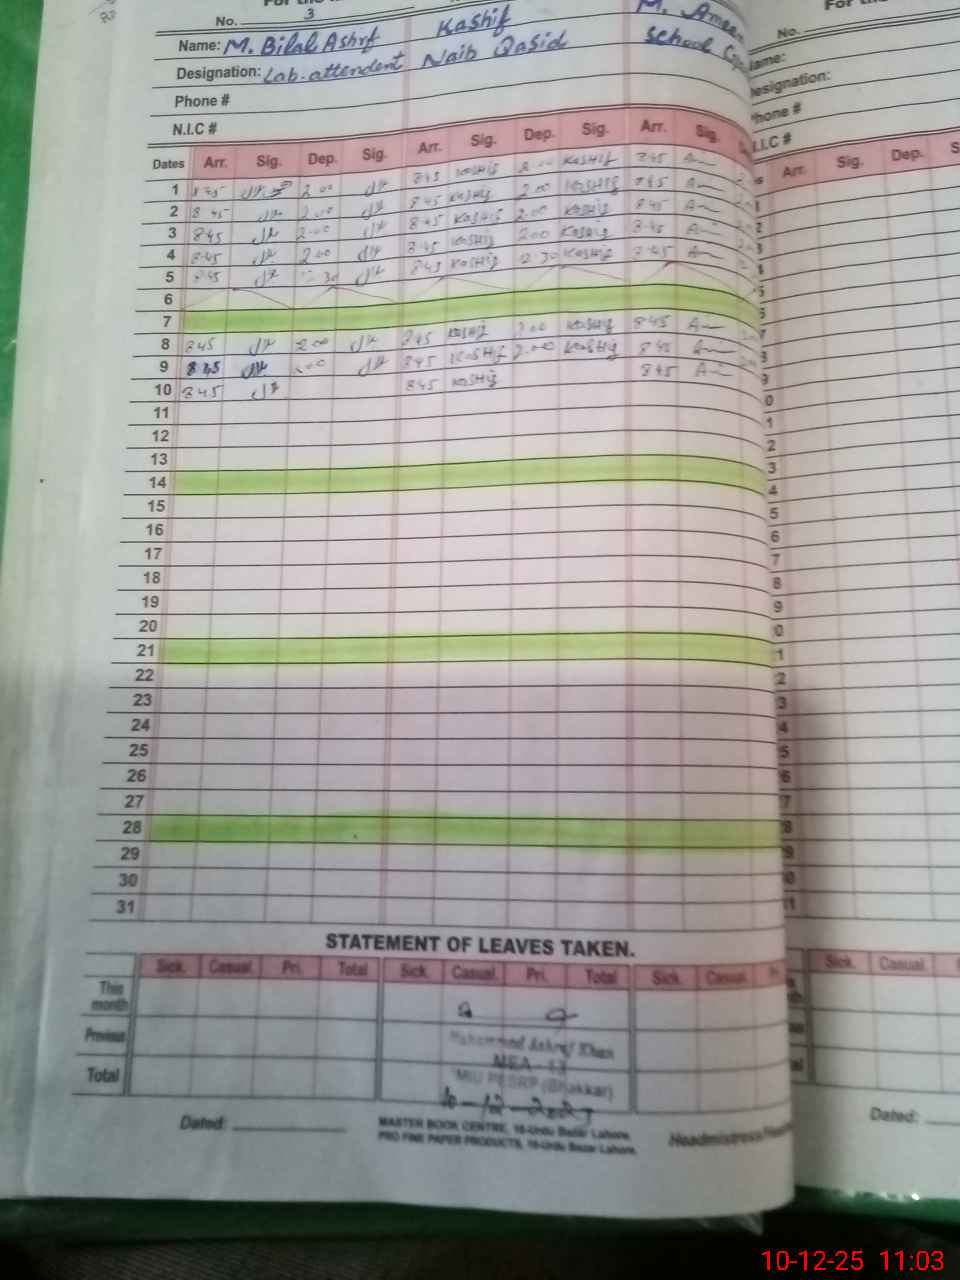 No. 3
Name: M. Bilal Ashrf Kashif M. Ameen
Designation: Lab. attendent Naib Qasid School
Phone #
N.I.C #
Dates Arr. Sig. Dep. Sig. Arr. Sig. Dep. Sig. Arr. Sig.
1 8 45 2 00 845 Kashif 2 00 Kashif 845
2 8 45 2.00 845 Kashif 2.00 Kashif 845
3 845 2.00 845 Kashif 2.00 Kashif 845
4 845 200 845 Kashif 200 Kashif 845
5 845 12 30 845 Kashif 12.30 Kashif 845
6
7
8 845 2.00 845 Kashif 2.00 Kashif 845
9 845 845 Kashif 2.00 Kashif 845
10 845 845 Kashif 845
11
12
13
14
15
16
17
18
19
20
21
22
23
24
25
26
27
28
29
30
31
STATEMENT OF LEAVES TAKEN.
Sick. Casual. Pri. Total Sick. Casual. Pri. Total Sick. Casual.
This month
Previous
Total
Muhammad Ashraf Khan
MEA - 13
MIU PESRP (Bhakkar)
10-12-2025
Dated:
MASTER BOOK CENTRE, 16-Urdu Bazar Lahore.
PRO FINE PAPER PRODUCTS, 16-Urdu Bazar Lahore.
Headmistress
No.
Name:
Designation:
Phone #
N.I.C #
Arr. Sig. Dep.
Sick. Casual.
Dated:
10-12-25 11:03